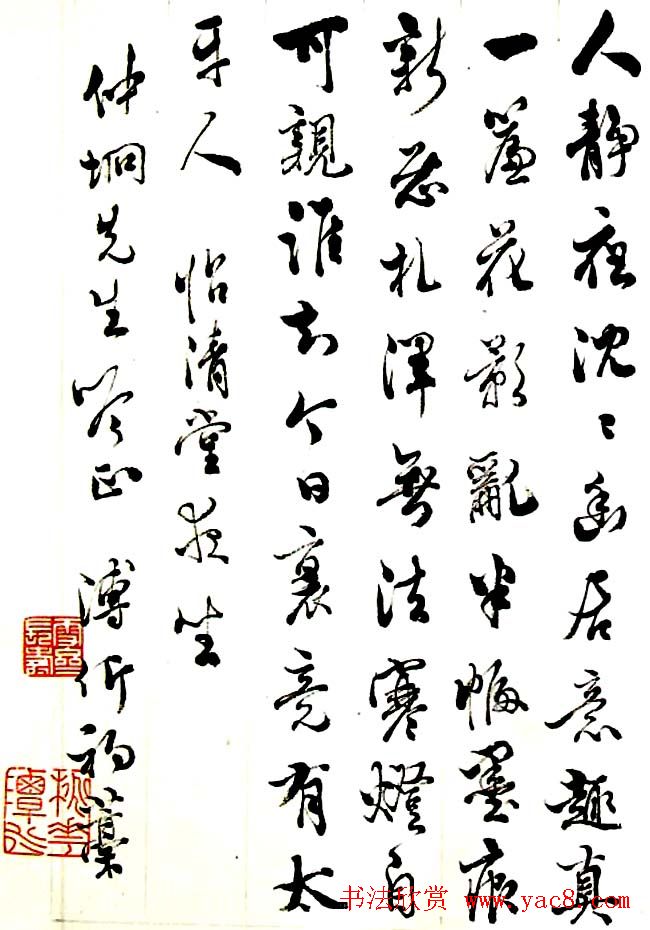 人靜夜沈〻幽居意趣真
一簾花影亂半幅墨痕
新惡札渾無法寒燈自
可親誰知今日裏竟有太
平人 怡清堂夜坐
仲坰先生吟正 溥伒初藁
书法欣赏 www.yac8.com